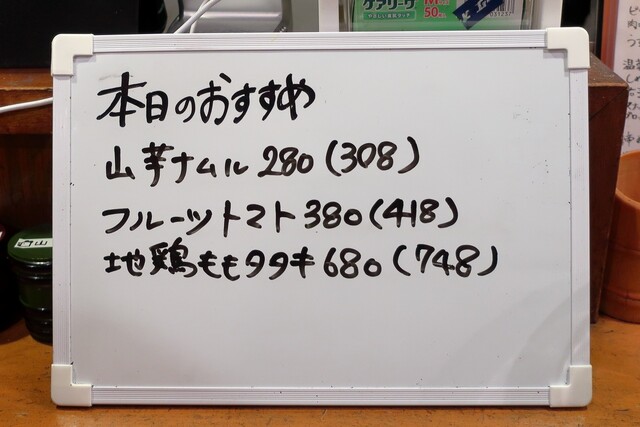 ケアリーヴ
M
50
本日のおすすめ
山芋ナムル 280(308)
フルーツトマト 380(418)
地鶏ももタタキ 680(748)